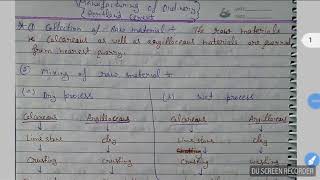 Manufacturing of Ordinary
Portland Cement
(1) Collection of Raw material ÷ The raw materials
Calcareous as well as argillaceous materials are
from nearest quarry.
(2) Mixing of raw material ÷
(a) Dry process (b) Wet process
Calcareous Argillaceous Calcareous Argillaceous
Lime stone clay Lime stone clay
Crushing Crushing Crushing washing
1
DU SCREEN RECORDER